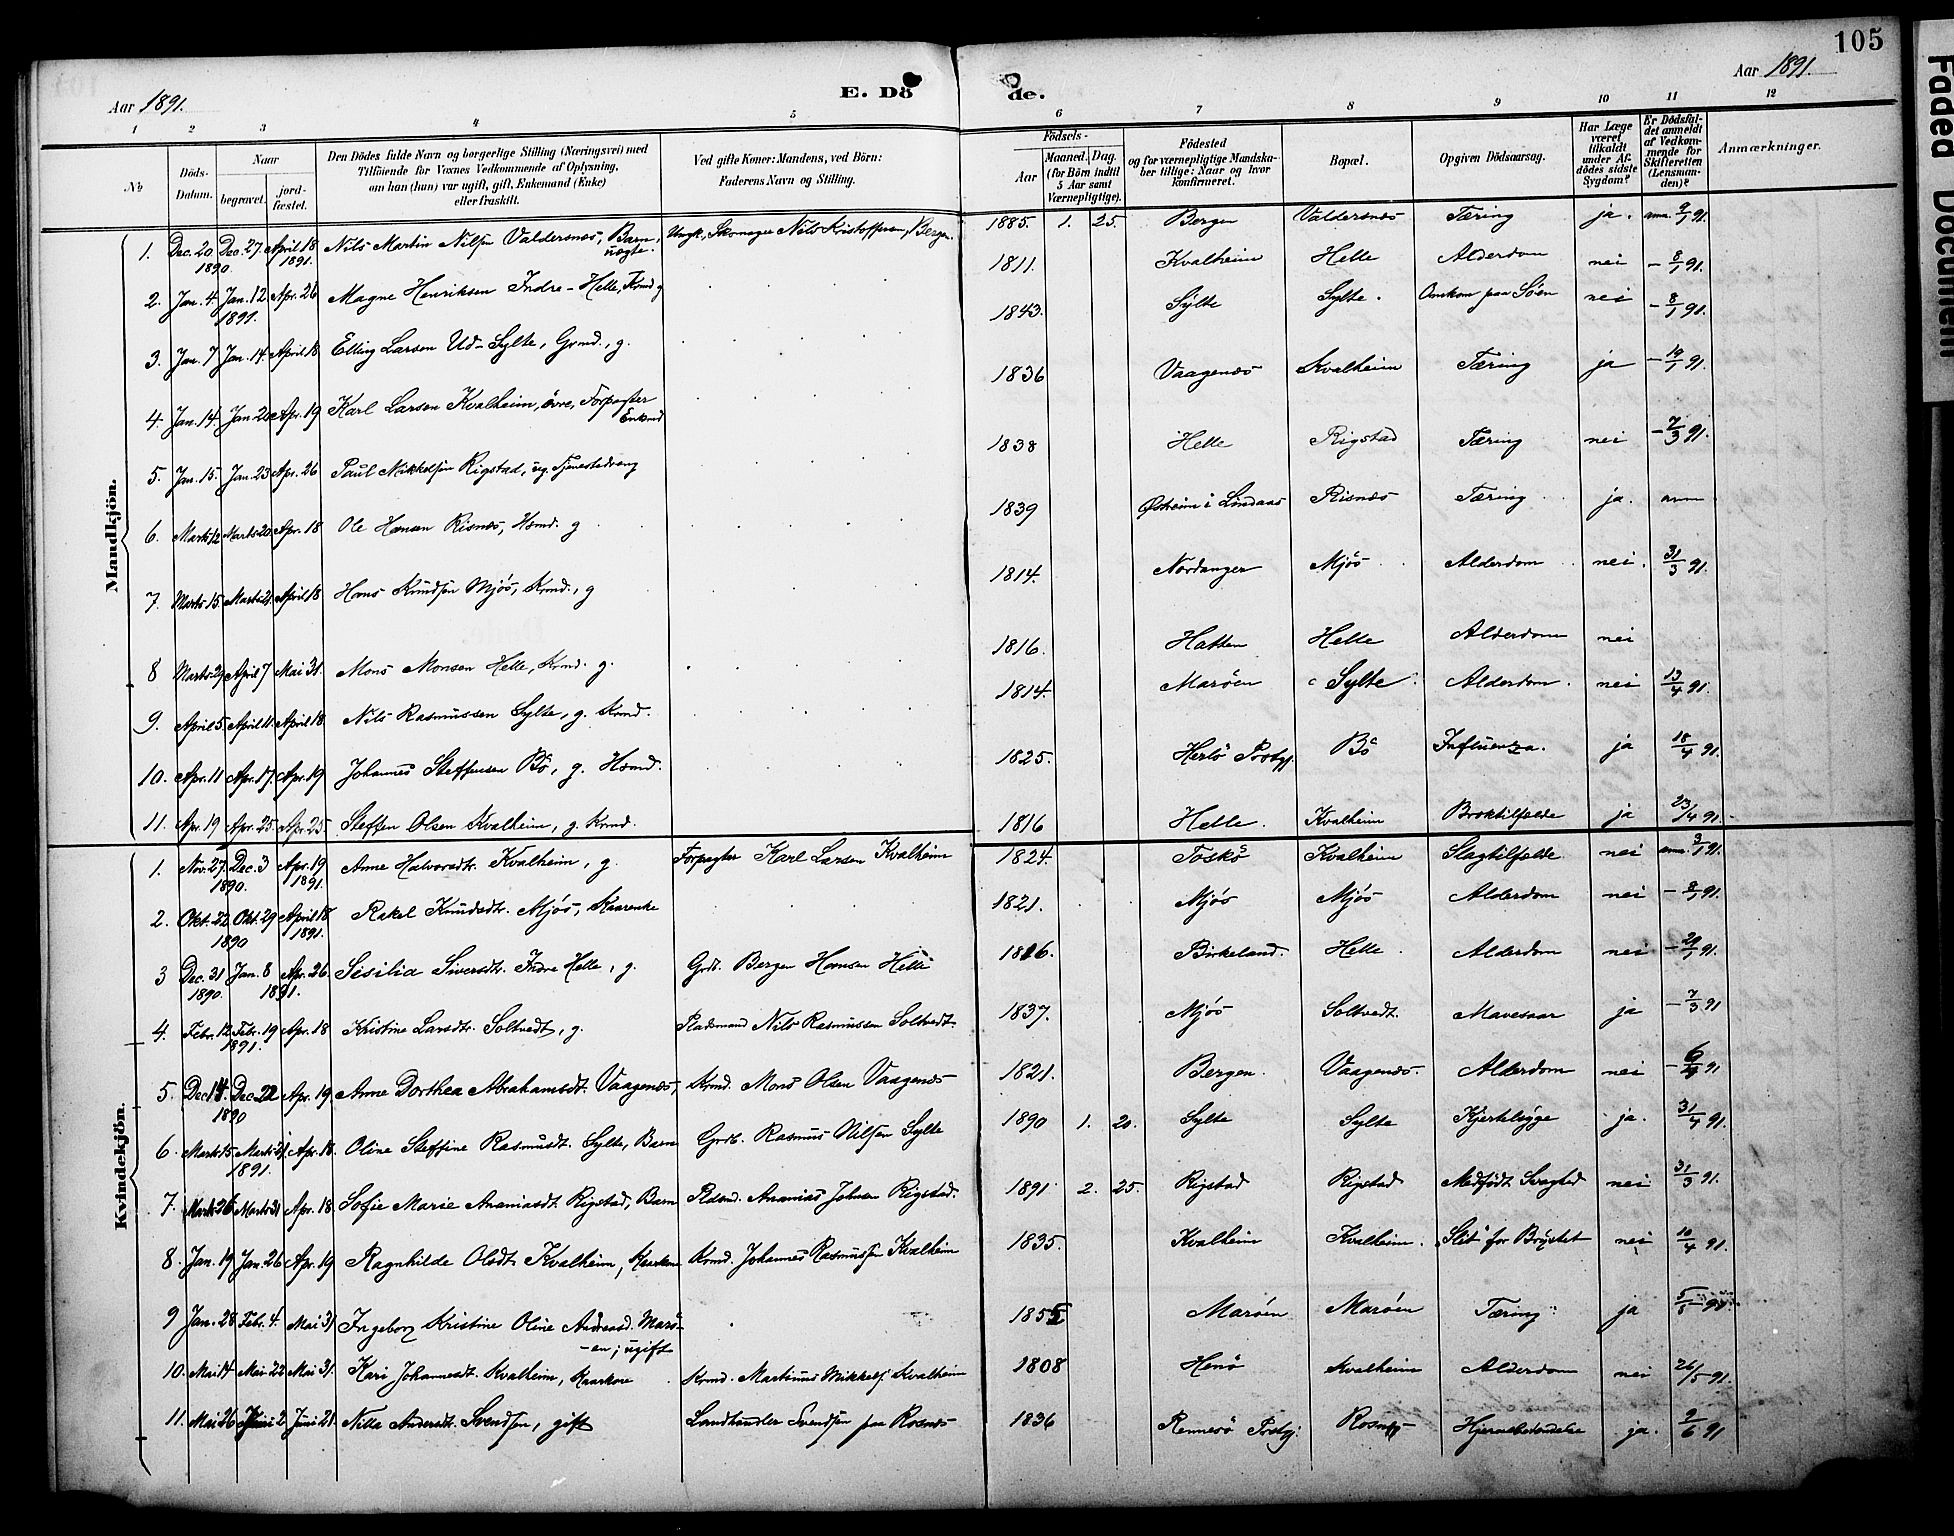 105
Aar 1891.
E. Dö de.
Aar 1891.
1 2 3 4 5 6 7 8 9 10 11 12
№
Döds-Datum.
Naar
begravet.
jord-fæstet.
Den Dödes fulde Navn og borgerlige Stilling (Næringsvei) med
Tilföiende for Voxnes Vedkommende af Oplysning,
om han (hun) var ugift, gift, Enkemand (Enke)
eller fraskilt.
Ved gifte Koner: Mandens, ved Börn:
Faderens Navn og Stilling.
Födsels-
Aar
Maaned. Dag.
(for Börn indtil
5 Aar samt
Værnepligtige).
Födested
og for værnepligtige Mandska-
ber tillige: Naar og hvor
konfirmeret.
Bopæl.
Opgiven Dödsaarsag.
Har Læge
været
tilkaldt
under Af-
dödes sidste
Sygdom?
Er Dödsfal-
det anmeldt
af Vedkom-
mende for
Skifteretten
(Lensman-
den)?
Anmærkninger.
Mandkjön.
1. Dec. 20 1890. Dec. 27 April 18 1891. Nils Martin Nilsen Valdersnæs, Barn, uægte. Ungk. Skomager Nils Kristoffersen, Bergen. 1885. 1. 25. Bergen Valdersnæs Tæring ja. anm. 9/1 91.
2. Jan. 4 Jan. 12 1891. Apr. 26 Magne Henriksen Indre-Helle, Krmd g 1811. Kvalheim Helle Alderdom nei - 8/1 91.
3. Jan. 7 Jan. 14. April 18 Elling Larsen Ud-Sylte, Grmd., g. 1843. Sylte Sylte. Omkom paa Søen nei - 8/1 91.
4. Jan. 14. Jan. 20 Apr. 19 Karl Larsen Kvalheim, øvre, Forpagter Enkmd 1836 Vaagenæs Kvalheim Tæring ja - 19/1 91.
5. Jan. 15. Jan. 23 Apr. 26 Paul Mikkelsen Rigstad, ug. Tjenestedreng 1838 Helle Rigstad Tæring nei - 7/3 91.
6. Marts 12 Marts 20 Apr. 18 Ole Hansen Risnæs, Hmd. g 1839 Østheim i Lindaas Risnæs Tæring ja. anm
7. Marts 15 Marts 21. April 18 Hans Knudsen Mjös, Krmd., g 1814. Nordanger Mjös Alderdom nei. 31/3 91.
8 Marts 29 April 7 Mai 31. Mons Monsen Helle, Krmd. g. 1816. Hatten Helle Alderdom nei
9. April 5. April 11. April 18 Nils Rasmussen Sylte, g. Krmd. 1814. Marøen Sylte Alderdom. nei 13/4 91.
10. Apr. 11 Apr. 17. Apr. 19 Johannes Steffensen Bö, g. Hsmd. 1825. Herlö Prstgj. Bö Influenza. ja 18/4 91.
11. Apr. 19 Apr. 25. Apr. 25. Steffen Olsen Kvalheim, g. Krmd. 1816 Helle. Kvalheim Broktilfælde ja 23/4 91.
Kvindekjön.
1. Nov. 27. 1890. Dec. 3 Apr. 19 1891. Anne Halvorsdt. Kvalheim, g. Forpagter Karl Larsen Kvalheim 1824. Toskö Kvalheim Slagtilfælde nei anm. 3/1 91.
2. Okt. 22 Okt. 29 1890 April 18. 1891. Rakel Knudsdt. Mjös, Kaarenke 1821. Mjös Mjös Alderdom nei - 8/1 91.
3 Dec. 31 1890. Jan. 8 1891. Apr. 26. Sesilia Siversdt. Indre Helle, g. Grdb. Berge Hansen Helle 1816. Birkeland. Helle. Alderdom nei - 29/1 91.
4. Febr. 12. Febr. 19 1891. Apr. 18 Kristine Larsdt. Soltvedt, g. Pladsmand Nils Rasmussen Soltvedt. 1837. Mjös Soltvedt. Mavesaar ja - 7/3 91
5. Dec. 14. Dec. 22 1890 Apr. 19 Anne Dorthea Abrahamsdt. Vaagenæs, Krmd. Mons Olsen Vaagenæs 1821. Bergen. Vaagenæs. Alderdom nei 91
6. Marts 15 Marts 21. 1891. Apr. 18. Oline Steffine Rasmusdt. Sylte, Barn Grdb. Rasmus Nilsen Sylte 1890 1. 20. Sylte Sylte Kjertelsyge ja. 31/4 91.
7. Marts 26 Marts 31 Apr. 18 Sofie Marie Ananiasdt. Rigstad, Barn Pladsmd. Ananias Johnsen Rigstad. 1891 2. 25. Rigstad Rigstad Medfødt Svaghed nei 31/3 91.
8. Jan. 19 Jan. 26 Apr. 19 Ragnhilde Olsdt. Kvalheim, Kaarkone Krmd. Johannes Rasmussen Kvalheim 1835. Kvalheim Kvalheim. Slit for Brystet nei 10/4 91.
9 Jan. 28 Febr. 4. Mai 31 Ingeborg Kristine Oline Andreasd. Marö-en; ugift 1855 Marøen Marøen Tæring ja 5/5 91.
10. Mai 14 Mai 22 Mai 31. Kari Johannesdt. Kvalheim, Kaarkone Krmd. Martinus Mikkels. Kvalheim 1808 Henö Kvalheim Alderdom nei 26/5 91.
11. Mai 26 Juni 2 Juni 21. Nille Andersdt. Svendsen, gift Landhandler Svendsen paa Rosnæs 1836 Rennesö Prstgj. Rosnæs Hjernebetændelse ja. 2/6 91
Faded Document